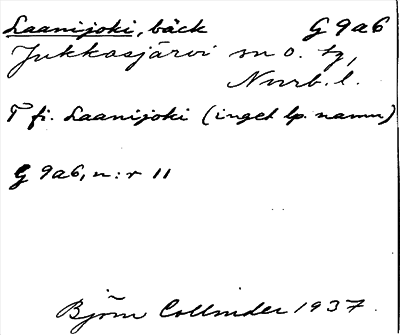 Laanijoki, bäck G 9a6
Jukkasjärvi sn o. tg,
Norrb. l.
T fi. Laanijoki (inget lp. namn)
G 9a6, n:r 11
Björn Collinder 1937.